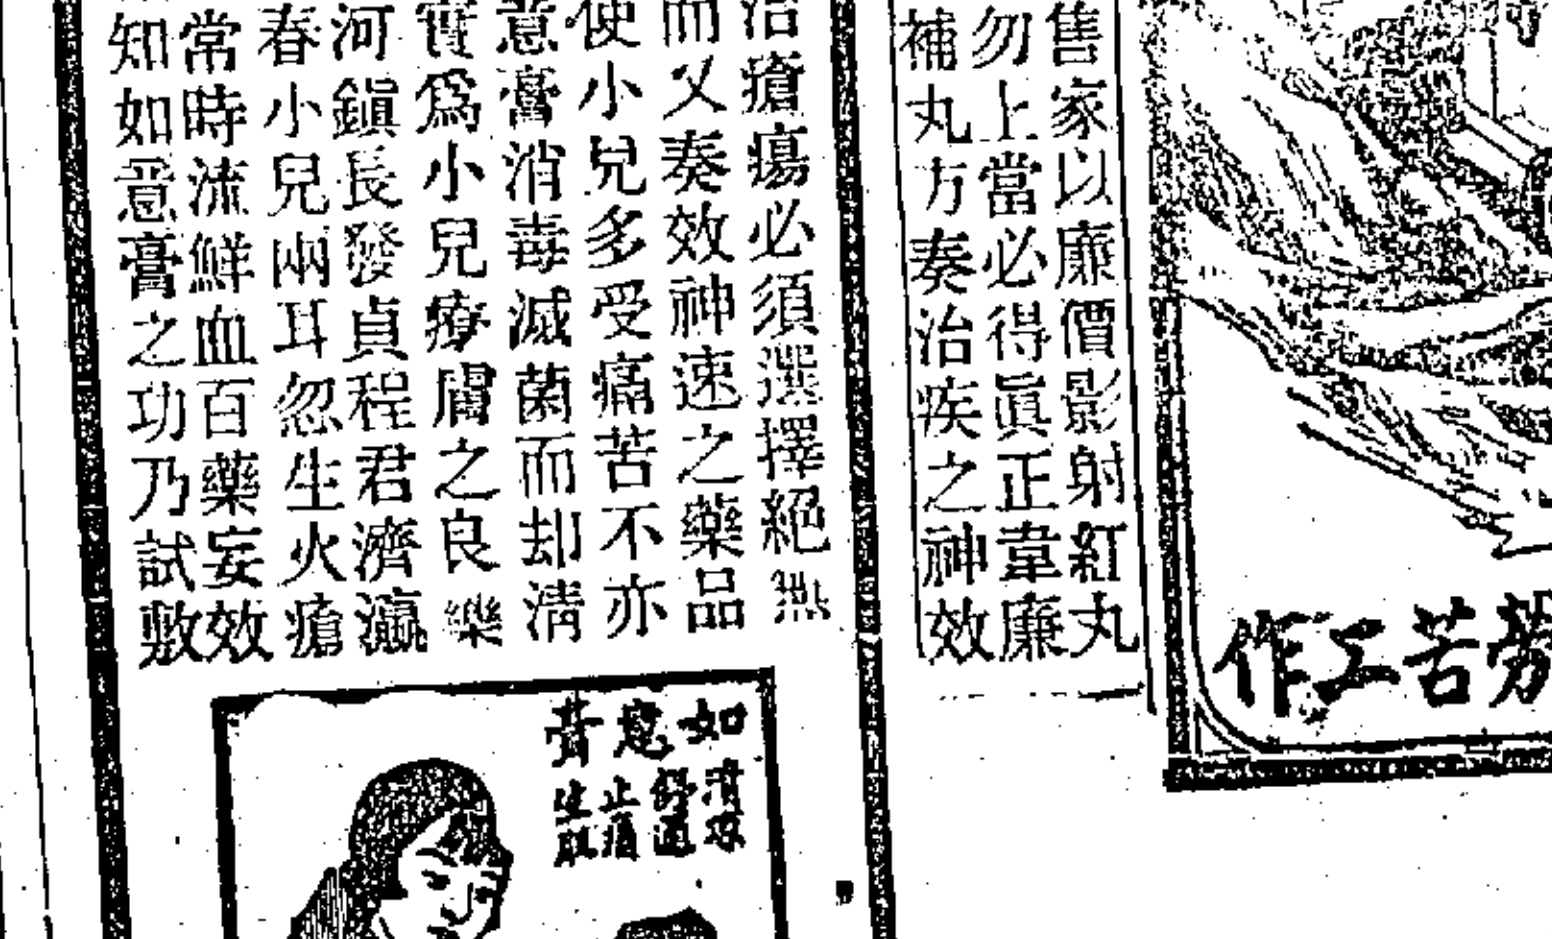 勞苦工作
售家以廉價影射紅丸
勿上當必得眞正韋廉
補丸方奏治疾之神效
治瘡瘍必須選擇絕無
而又奏效神速之藥品
使小兒多受痛苦不亦
意膏消毒滅菌而却清
實爲小兒療膚之良藥
河鎭長發貞程君濟瀛
春小兒兩耳忽生火瘡
常時流鮮血百藥妄效
知如意膏之功乃試敷
如意膏
清涼
舒適
止痛
生肌